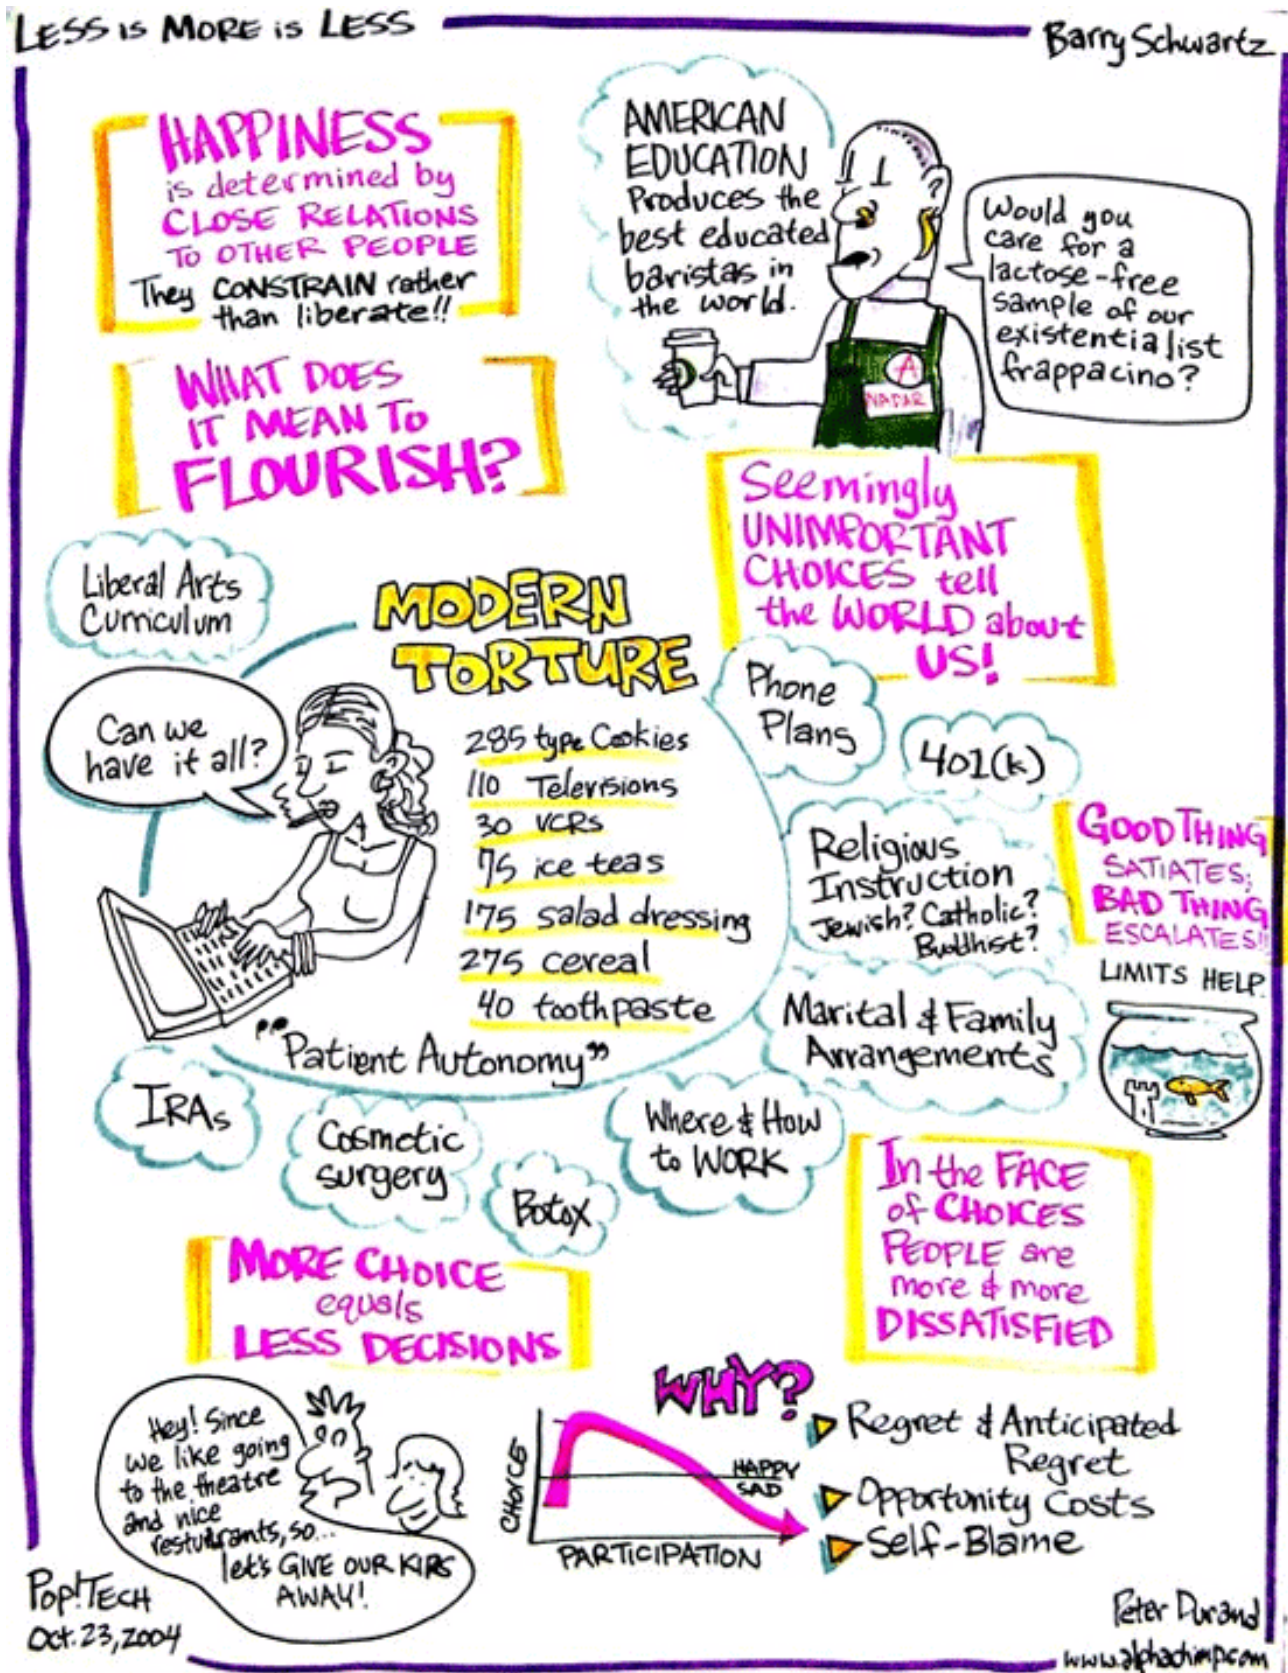 LESS is MORE is LESS
Barry Schwartz
HAPPINESS
is determined by
CLOSE RELATIONS
TO OTHER PEOPLE
They CONSTRAIN rather
than liberate!!
AMERICAN
EDUCATION
Produces the
best educated
baristas in
the world.
Would you
care for a
lactose-free
sample of our
existentialist
frappacino?
A
WHAT DOES
IT MEAN TO
FLOURISH?
Seemingly
UNIMPORTANT
CHOICES tell
the WORLD about
US!
Liberal Arts
Curriculum
Can we
have it all?
MODERN
TORTURE
285 type Cookies
110 Televisions
30 VCRs
75 ice teas
175 salad dressing
275 cereal
40 toothpaste
"Patient Autonomy"
Phone
Plans
401(k)
Religious
Instruction
Jewish? Catholic?
Buddhist?
Marital & Family
Arrangements
Where & How
to WORK
Botox
Cosmetic
surgery
IRAs
GOOD THING
SATIATES;
BAD THING
ESCALATES!!
LIMITS HELP.
In the FACE
of CHOICES
PEOPLE are
more & more
DISSATISFIED
MORE CHOICE
equals
LESS DECISIONS
Hey! Since
we like going
to the theatre
and nice
restuarants, so...
let's GIVE OUR KIDS
AWAY!
WHY?
CHOICE
HAPPY
SAD
PARTICIPATION
Regret & Anticipated
Regret
Opportunity Costs
Self-Blame
Pop!TECH
Oct. 23, 2004
Peter Durand
www.alphachimp.com